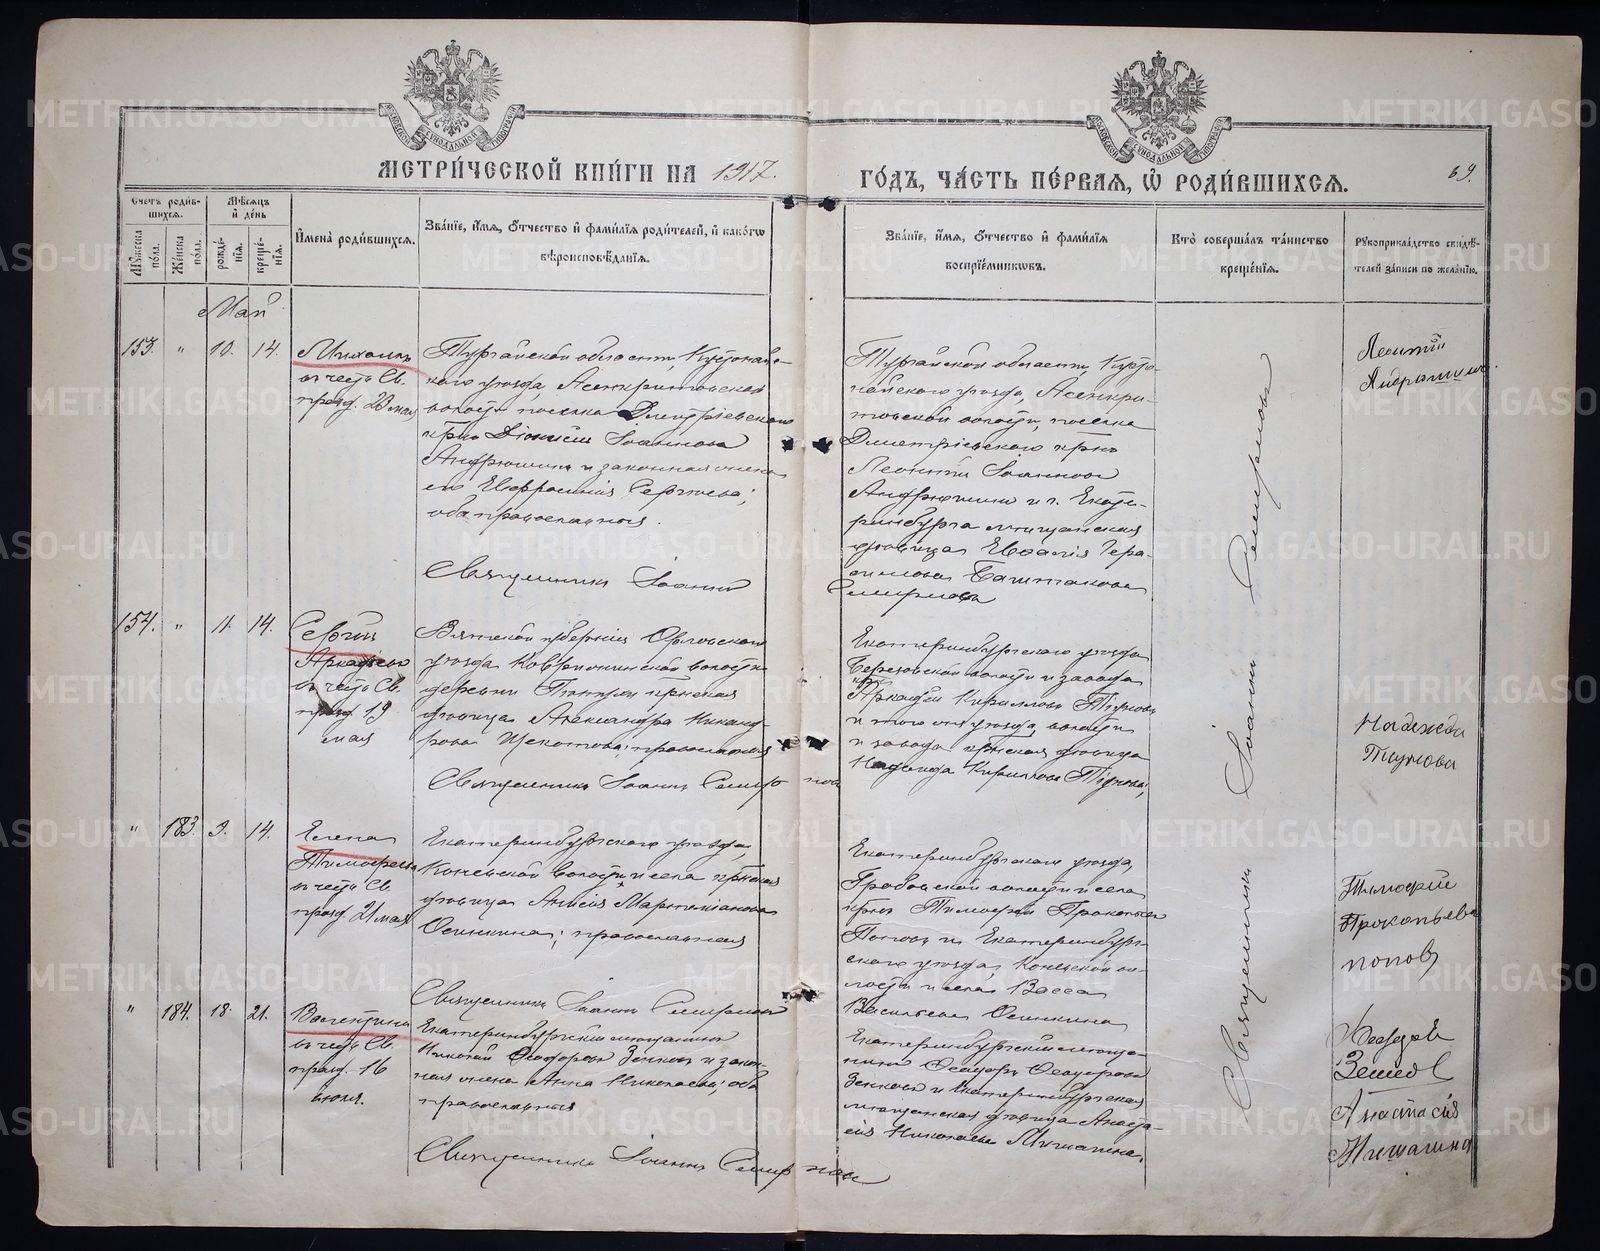 МЕТРИЧЕСКОЙ КНИГИ НА 1917.
ГОДЪ, ЧАСТЬ ПЕРВАЯ, Ѽ РОДИВШИХСЯ.
69.
Счетъ родив-
шихся.
Мѣсяцъ
и день
Мужеска пола.
Женска пола.
рожде-
нія.
креще-
нія.
Имена родившихся.
Званіе, имя, отчество и фамилія родителей, и какогѡ
вѣроисповѣданія.
Званіе, имя, отчество и фамилія
воспріемниковъ.
Кто совершалъ таинство
крещенія.
Рукоприкладство свидѣ-
телей записи по желанію.
Май
153. " 10. 14.
Михаилъ
въ честь Св.
празд. 23 мая
Тургайской области, Кустанай-
скаго уѣзда, Асенкритовской
волости поселка Дмитріевскаго
кр-нъ Діонисій Іоанновъ
Андрюшинъ и законная жена
его Евфросинія Сергіева;
оба православныя.
Священникъ Іоаннъ
Смирновъ
Тургайской области, Куста-
найскаго уѣзда, Асенкри-
товской волости, поселка
Дмитріевскаго кр-нъ
Леонтій Іоанновъ
Андрюшинъ и г. Екате-
ринбурга мѣщанская
дѣвица Евдокія Гера-
симова Башмакова
Леонтій
Андрюшинъ
154. " 11. 14.
Сергій
Аркадіевъ
въ честь Св.
празд. 19
мая
Вятской губерніи Орловскаго
уѣзда
волости
деревни
кр-нская
дѣвица Александра Никанд-
рова Щекотова; православная
Священникъ Іоаннъ Смирновъ
Екатеринбургскаго уѣзда
Березовской волости и завода
Аркадій Кирилловъ
и того же уѣзда, волости
и завода кр-нская дѣвица
Надежда Кириллова
Надежда
" 183. 9. 14.
Елена
Тимофеева
въ честь Св.
празд. 21 мая
Екатеринбургскаго уѣзда,
Коневской волости и села кр-нская
дѣвица Анисія Мартиміанова
Осинкина; православная
Священникъ Іоаннъ Смирновъ
Екатеринбургскаго уѣзда,
Гробовской волости и села
кр-нъ Тимофей Прокопьевъ
Поповъ и Екатеринбург-
скаго уѣзда, Коневской во-
лости и села Васса
Васильева Осинкина
Тимофей
Прокопьевъ
поповъ
" 184. 18. 21.
Валентина
въ честь Св.
празд. 16
іюля.
Екатеринбургскій мѣщанинъ
Николай Ѳеодоровъ Зенковъ и закон-
ная жена Анна Николаева; оба
православныя
Священникъ Іоаннъ Смирновъ
Екатеринбургскій мѣща-
нинъ Ѳеодоръ Ѳеодоровъ
Зенковъ и Екатеринбургская
мѣщанская дѣвица Анаста-
сія Николаева Мишагина.
Анастасія
Мишагина
Священникъ Іоаннъ Смирновъ
METRIKI.GASO-URAL.RU